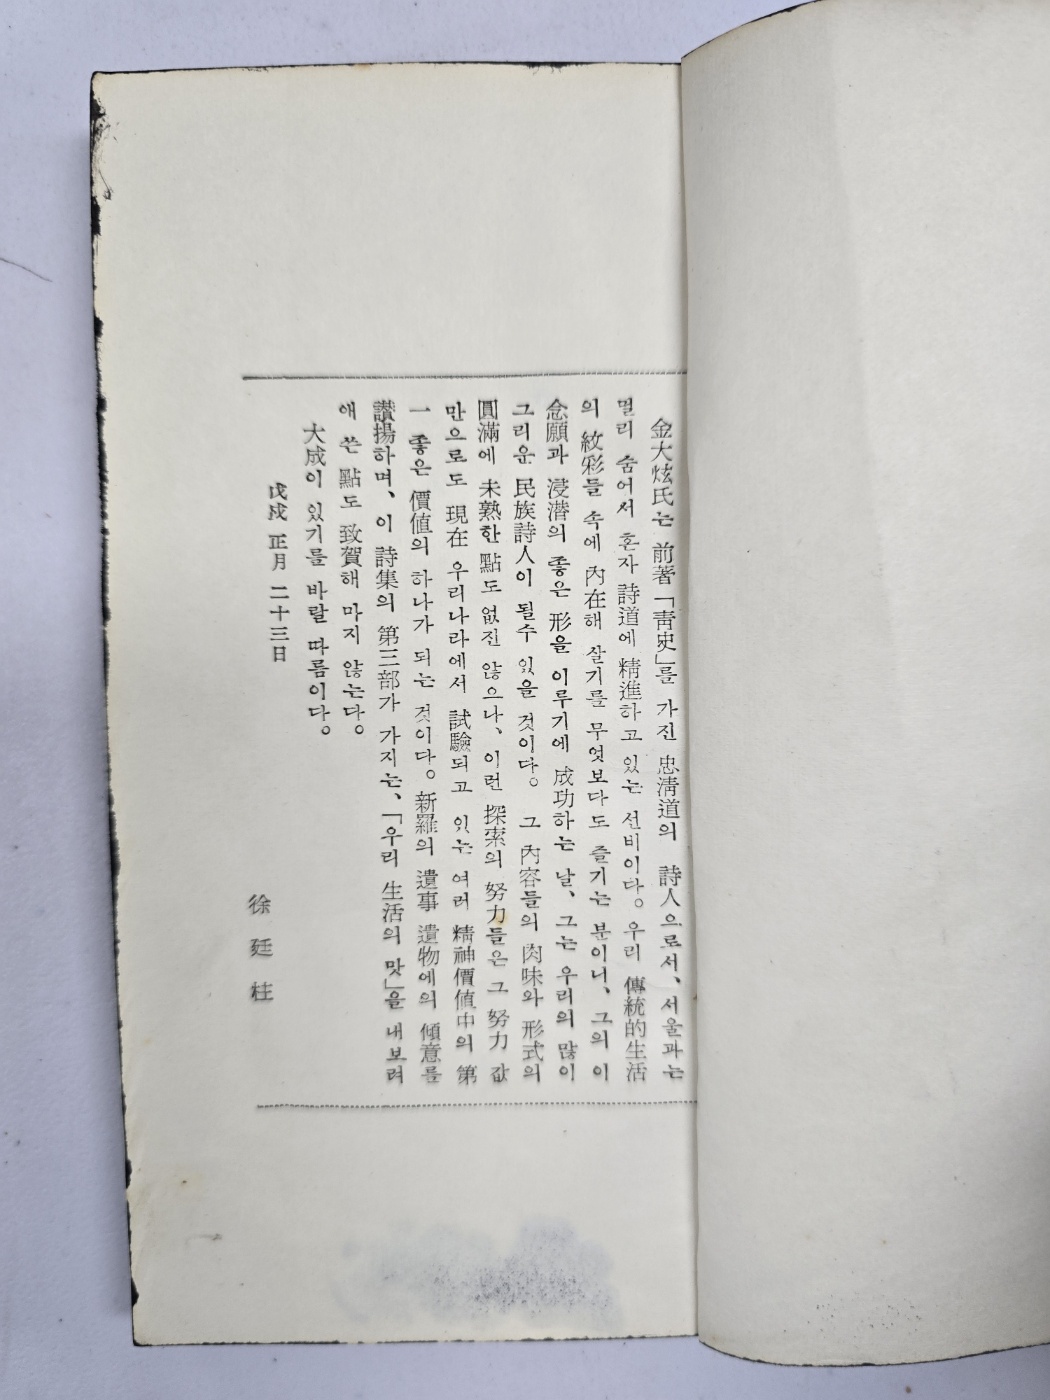 金大炫氏는 前著「靑史」를 가진 忠淸道의 詩人으로서、서울과는
멀리 숨어서 혼자 詩道에 精進하고 있는 선비이다。우리 傳統的生活
의 紋彩들 속에 內在해 살기를 무엇보다도 즐기는 분이니、그의 이
念願과 浸潛의 좋은 形을 이루기에 成功하는 날、그는 우리의 많이
그리운 民族詩人이 될수 있을 것이다。 그 內容들의 肉味와 形式의
圓滿에 未熟한 點도 없진 않으나、이런 探索의 努力들은 그 努力 값
만으로도 現在 우리나라에서 試驗되고 있는 여러 精神價値中의 第
一 좋은 價値의 하나가 되는 것이다。新羅의 遺事 遺物에의 傾意를
讚揚하며、이 詩集의 第三部가 가지는、「우리 生活의 맛」을 내보려
애 쓴 點도 致賀해 마지 않는다。
大成이 있기를 바랄 따름이다。
戊戌 正月 二十三日
徐廷柱